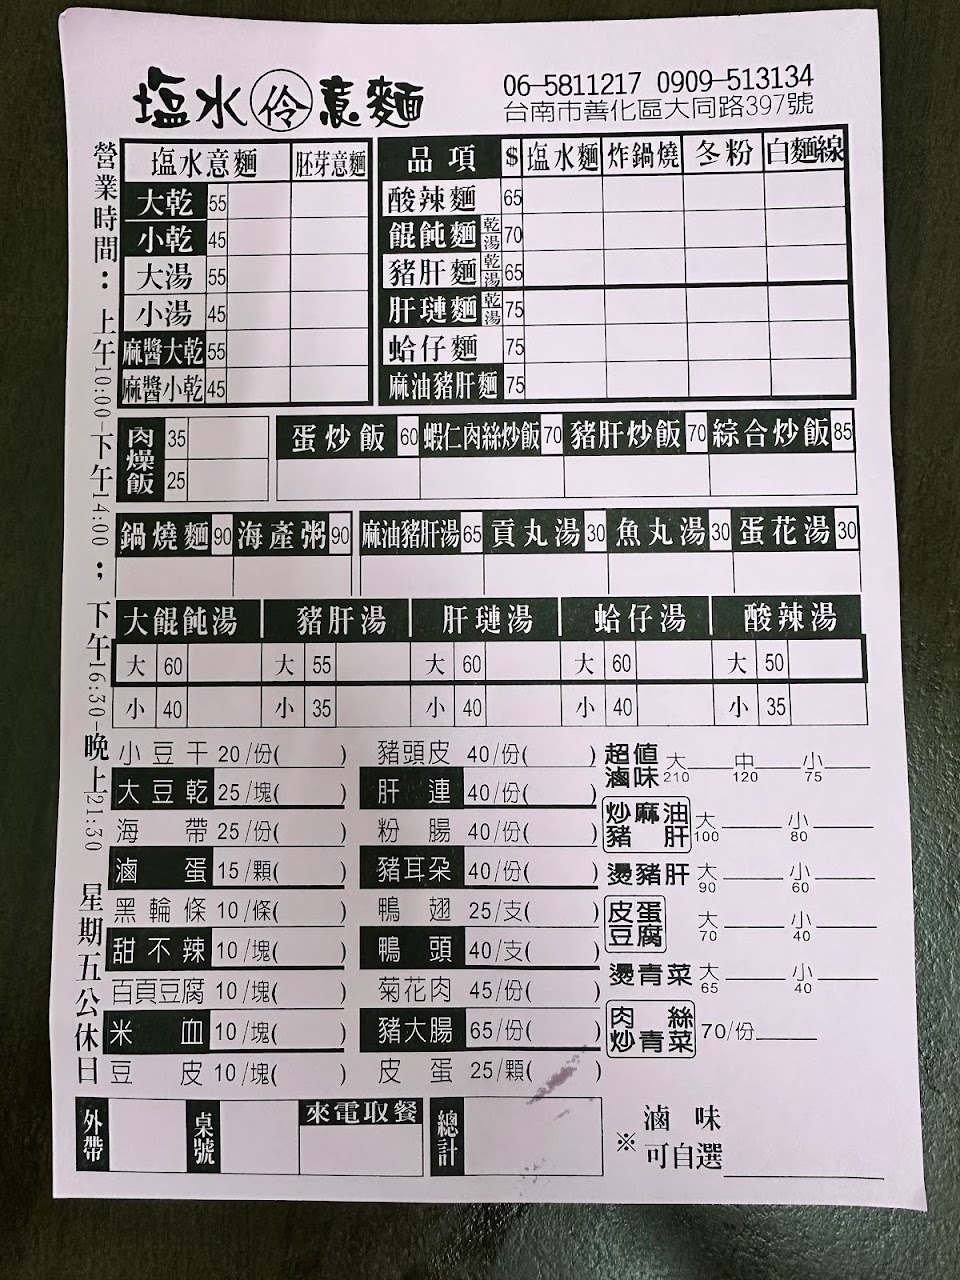 塩水伶意麵
06-5811217 0909-513134
台南市善化區大同路397號
營業時間：上午10:00-下午14:00；下午16:30-晚上21:30 星期五公休日
塩水意麵 胚芽意麵
大乾 55
小乾 45
大湯 55
小湯 45
麻醬大乾 55
麻醬小乾 45
品項 $ 塩水麵 炸鍋燒 冬粉 白麵線
酸辣麵 65
餛飩麵 乾湯 70
豬肝麵 乾湯 65
肝璉麵 乾湯 75
蛤仔麵 75
麻油豬肝麵 75
肉燥飯 35 25
蛋炒飯 60 蝦仁肉絲炒飯 70 豬肝炒飯 70 綜合炒飯 85
鍋燒麵 90 海產粥 90 麻油豬肝湯 65 貢丸湯 30 魚丸湯 30 蛋花湯 30
大餛飩湯 豬肝湯 肝璉湯 蛤仔湯 酸辣湯
大 60 大 55 大 60 大 60 大 50
小 40 小 35 小 40 小 40 小 35
小豆干 20/份( )
大豆乾 25/塊( )
海帶 25/份( )
滷蛋 15/顆( )
黑輪條 10/條( )
甜不辣 10/塊( )
百頁豆腐 10/塊( )
米血 10/塊( )
豆皮 10/塊( )
豬頭皮 40/份( )
肝連 40/份( )
粉腸 40/份( )
豬耳朵 40/份( )
鴨翅 25/支( )
鴨頭 40/支( )
菊花肉 45/份( )
豬大腸 65/份( )
皮蛋 25/顆( )
超值滷味 大210 中120 小75
炒麻油豬肝 大100 小80
燙豬肝 大90 小60
皮蛋豆腐 大70 小40
燙青菜 大65 小40
肉絲炒青菜 70/份
外帶 桌號 來電取餐 總計
※滷味可自選